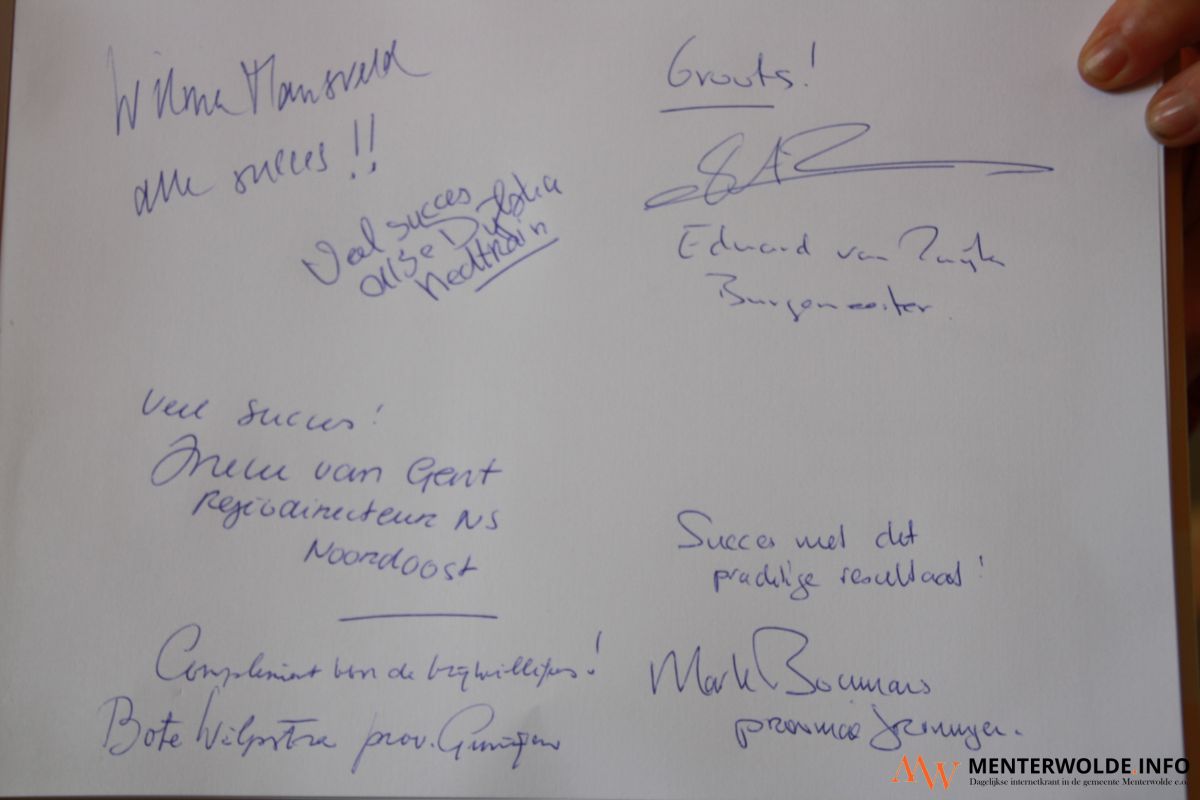 Wilma Mansveld
alle succes!!
Veel succes
Dijkstra
Nedtrain
Groots!
Eduard van Zuijlen
Burgemeester
Veel succes!
Ineke van Gent
Regiodirecteur NS
Noordoost
Compliment van de vrijwilligers!
Bote Wilpstra prov. Groningen
Succes met dit
prachtige resultaat!
Mark Boumans
provincie Groningen.
MW MENTERWOLDE.INFO
Dagelijkse internetkrant in de gemeente Menterwolde e.o.